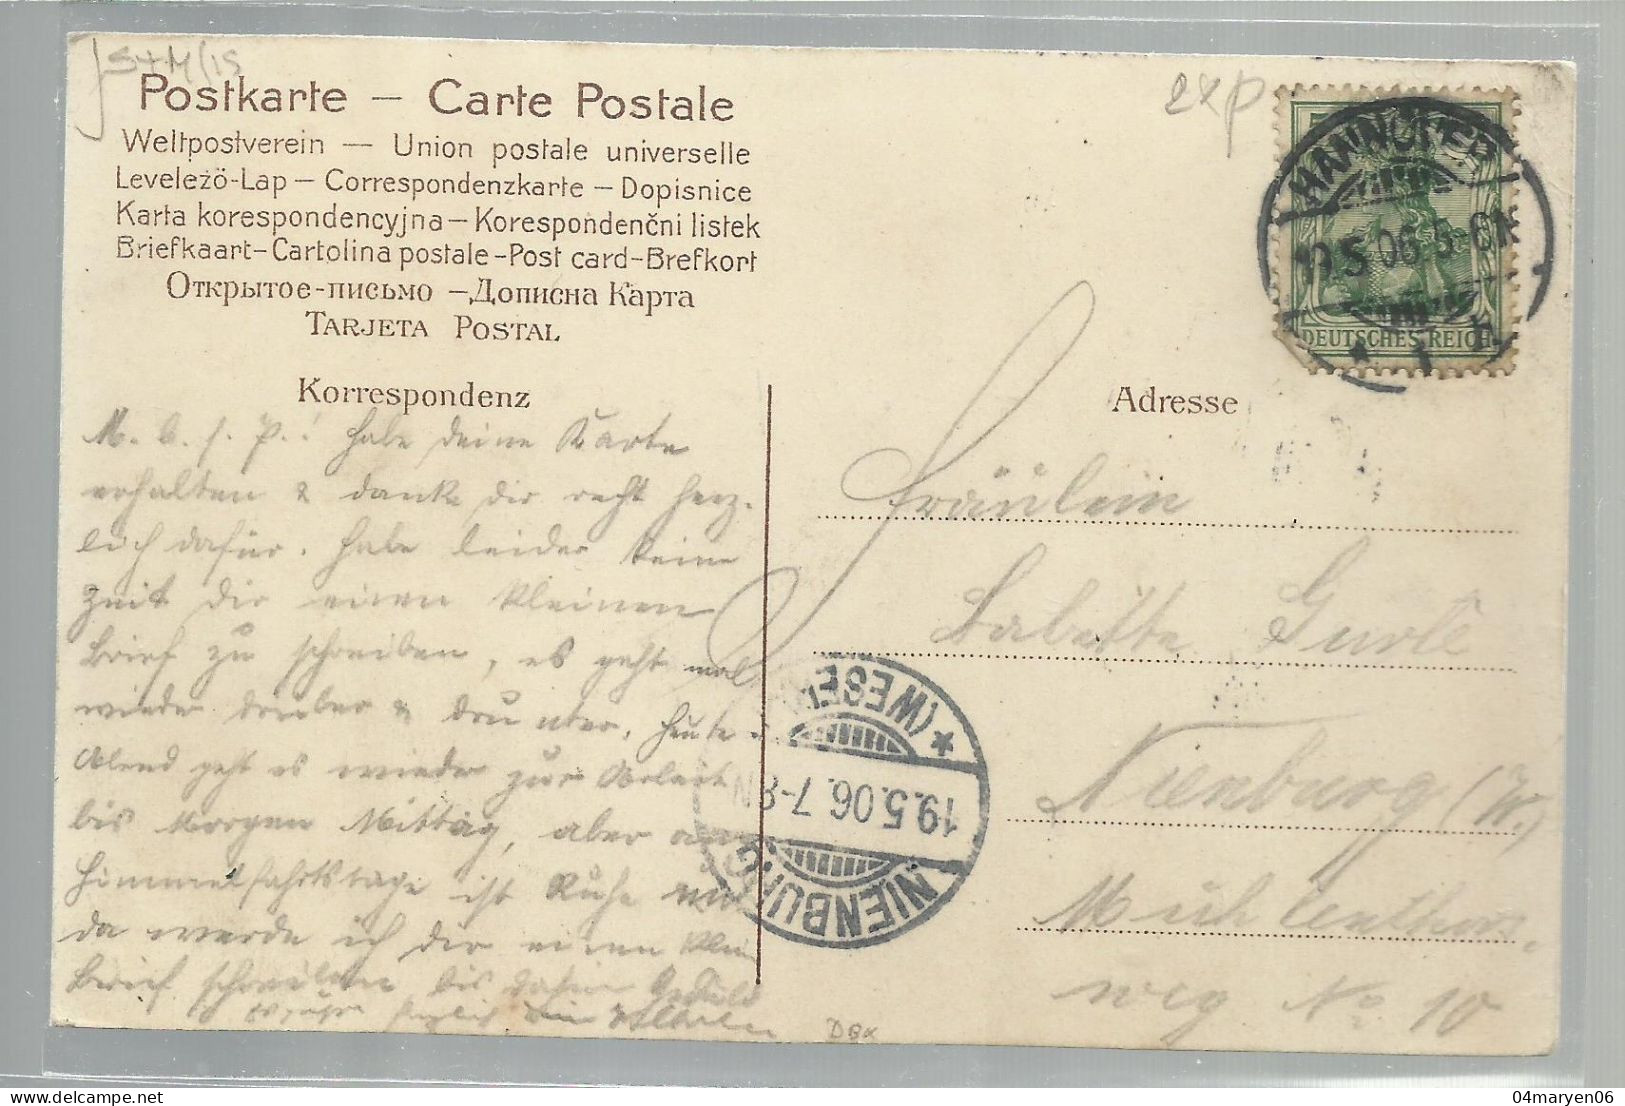 Postkarte – Carte Postale
Weltpostverein – Union postale universelle
Levelező-Lap – Correspondenzkarte – Dopisnice
Karta korespondencyjna – Korespondenční listek
Briefkaart – Cartolina postale – Post card – Brefkort
Открытое-письмо – Дописна Карта
TARJETA POSTAL
exp
HANNOVER
19 5 06 5-6N
DEUTSCHES REICH
Korrespondenz
Adresse
M. b. s. P.! Habe deine Karte
erhalten & danke dir recht herz-
lich dafür. Habe leider keine
Zeit dir einen kleinen
Brief zu schreiben, es geht mal
wieder drüber & drunter. Heute
Abend geht es wieder zur Arbeit
bis Morgen Mittag, aber am
Himmelfahrtstage ist Ruhe und
da werde ich dir einen klein
Brief schreiben bis dahin Geduld
Fräulein
Babette
Nienburg (W.)
Mühlenthors-
weg No 10
NIENBURG
19.5.06. 7-8 N
* (WESER)
DBX
04maryen06